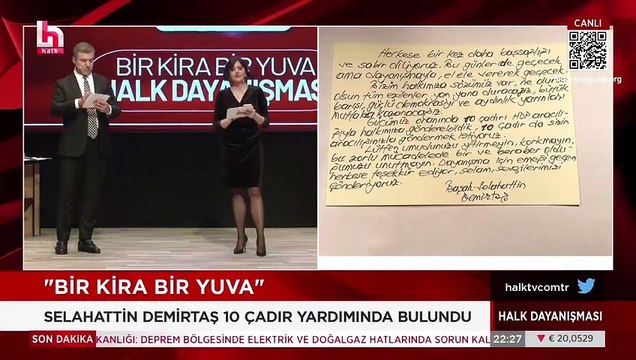 h
halk
BİR KİRA BİR YUVA
HALK DAYANIŞMASI
CANLI
Herkese bir kez daha başsağlığı
ve sabır diliyoruz. Bu günler de geçecek
ama dayanışmayla, el ele vererek geçecek.
Bizim halkımıza sözümüz var, ne olursa
olsun tüm ezilenler yan yana duracağız, büyük
barışı, güçlü demokrasiyi ve aydınlık yarınları
mutlaka kazanacağız.
Gücümüz oranında 10 çadırı HDP aracılı-
ğıyla halkımıza gönderebildik, 10 çadır da sizin
aracılığınızla göndermek istiyoruz.
Lütfen umudunuzu yitirmeyin, korkmayın,
bu zorlu mücadelede bir ve beraber oldu-
ğumuzu unutmayın. Dayanışma için emeği geçen
herkese teşekkür ediyor, selam, sevgilerimizi
gönderiyoruz.
Başak-Selahattin
Demirtaş
"BİR KİRA BİR YUVA"
halktvcomtr
SELAHATTİN DEMİRTAŞ 10 ÇADIR YARDIMINDA BULUNDU
HALK DAYANIŞMASI
SON DAKİKA
KANLIĞI: DEPREM BÖLGESİNDE ELEKTRİK VE DOĞALGAZ HATLARINDA SORUN KAL
22:27
€ 20,0529